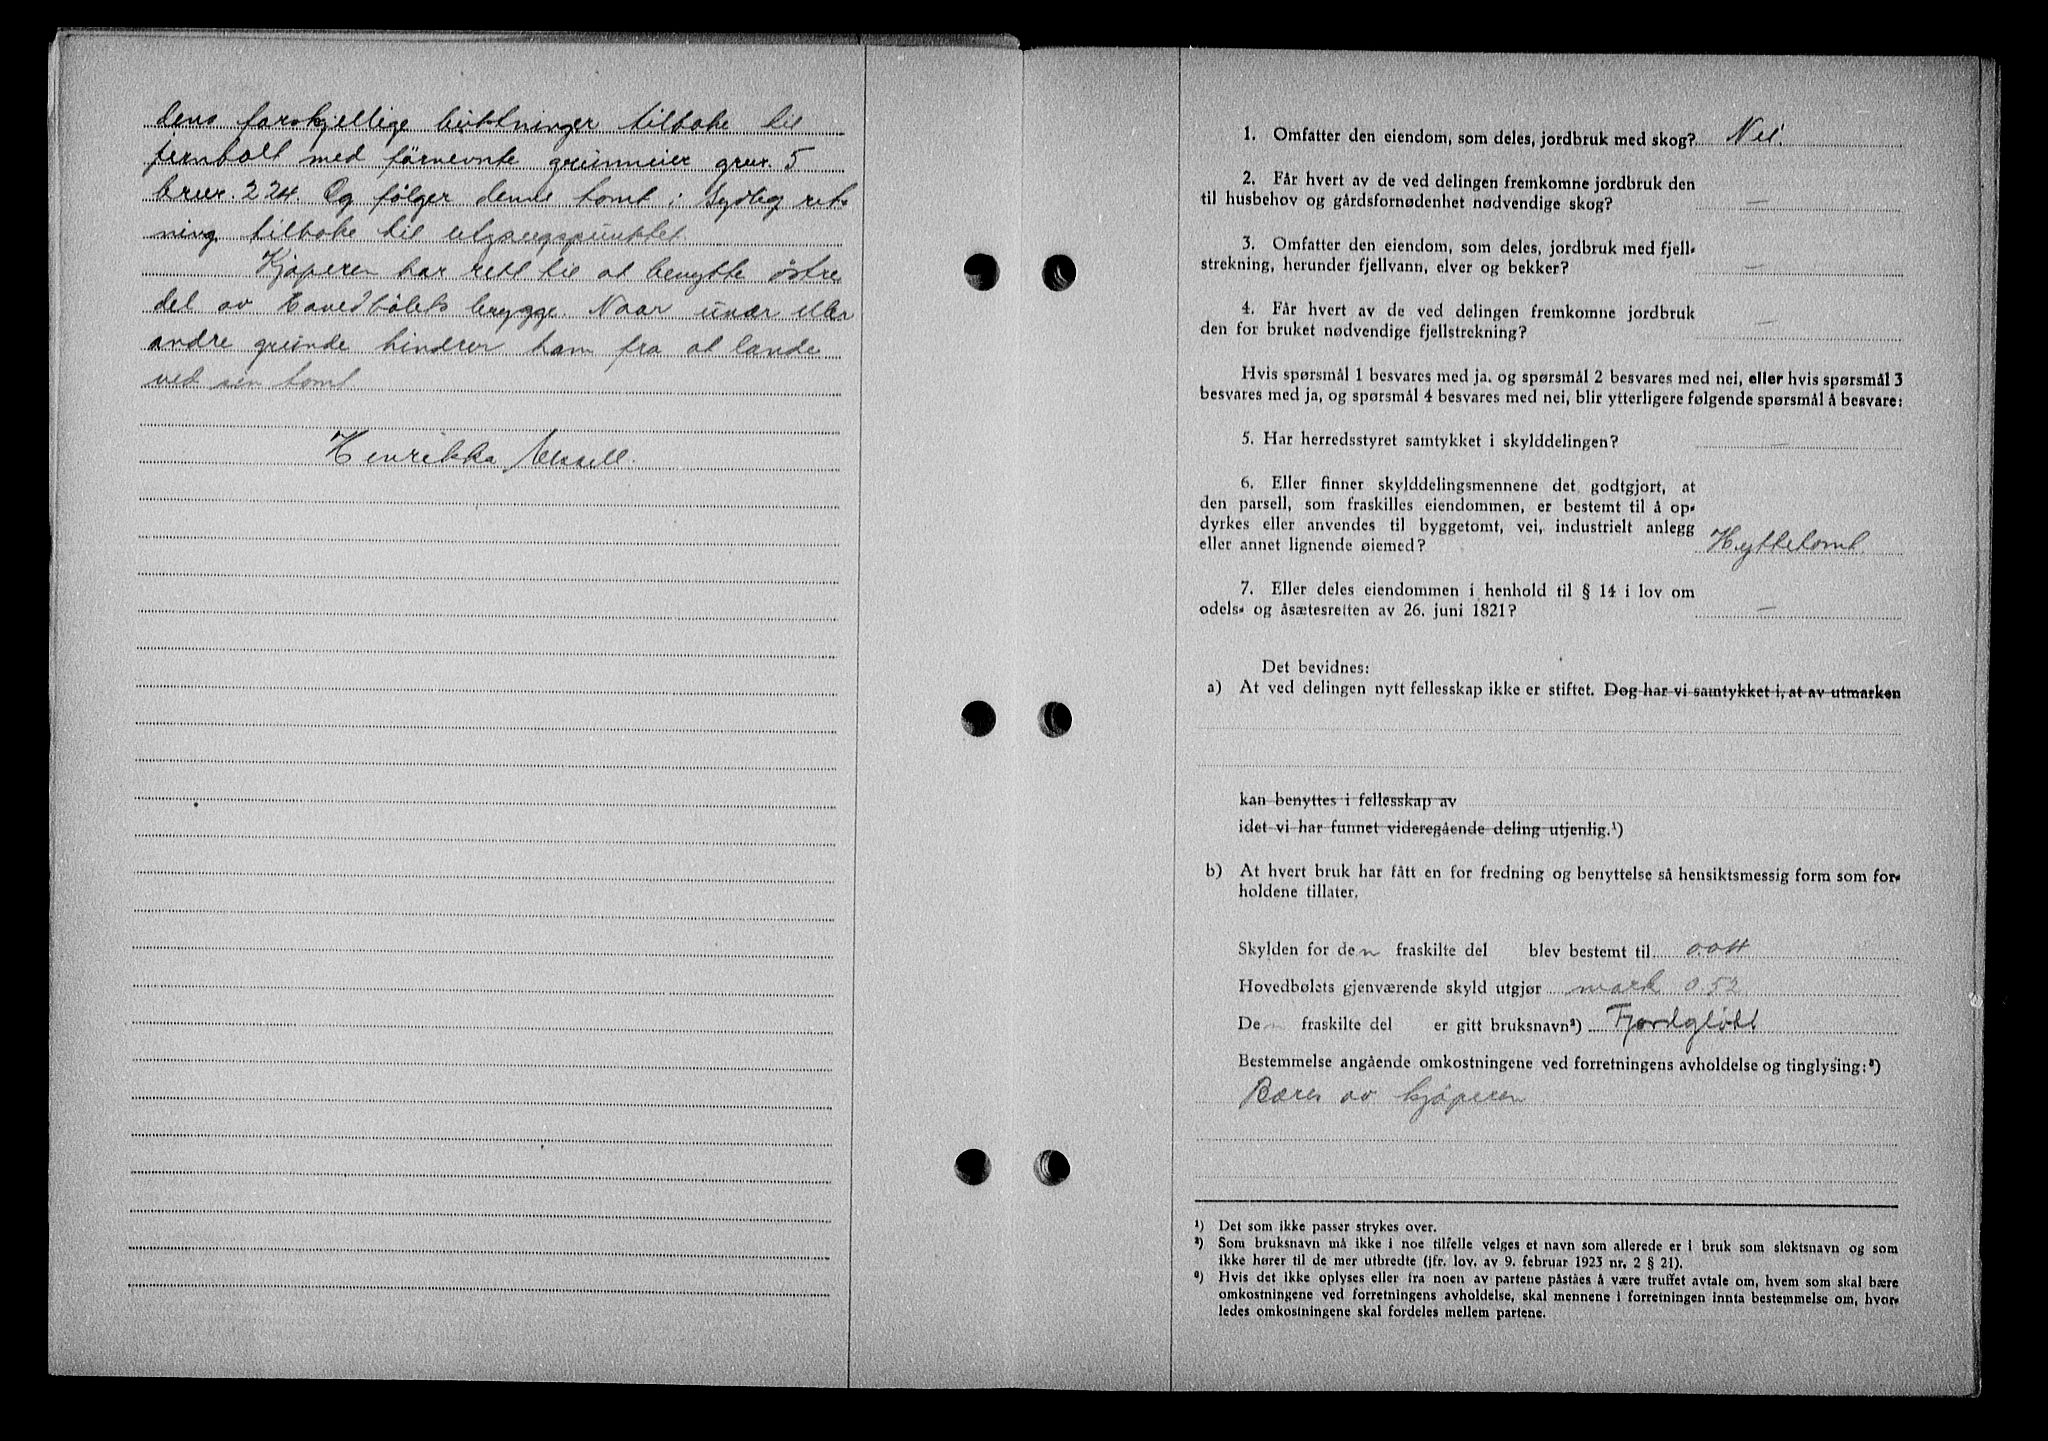 dens forskjellige buktninger tilbake til
jernbolt med førnevnte grunneier gnr. 5
brnr. 224. Og følger denne tomt i sydlig ret-
ning tilbake til utgangspunktet.
Kjøperen har rett til at benytte østre
del av Hovedbølets brygge. Naar uvær eller
andre grunde hindrer ham fra at lande
ved sin tomt
Henrikka
1. Omfatter den eiendom, som deles, jordbruk med skog? Nei.
2. Får hvert av de ved delingen fremkomne jordbruk den
til husbehov og gårdsfornødenhet nødvendige skog? —
3. Omfatter den eiendom, som deles, jordbruk med fjell-
strekning, herunder fjellvann, elver og bekker? —
4. Får hvert av de ved delingen fremkomne jordbruk
den for bruket nødvendige fjellstrekning? —
Hvis spørsmål 1 besvares med ja, og spørsmål 2 besvares med nei, eller hvis spørsmål 3
besvares med ja, og spørsmål 4 besvares med nei, blir ytterligere følgende spørsmål å besvare:
5. Har herredsstyret samtykket i skylddelingen? —
6. Eller finner skylddelingsmennene det godtgjort, at
den parsell, som fraskilles eiendommen, er bestemt til å op-
dyrkes eller anvendes til byggetomt, vei, industrielt anlegg
eller annet lignende øiemed? Hyttetomt.
7. Eller deles eiendommen i henhold til § 14 i lov om
odels- og åsætesretten av 26. juni 1821? —
Det bevidnes:
a) At ved delingen nytt fellesskap ikke er stiftet. Dog har vi samtykket i, at av utmarken
kan benyttes i fellesskap av
idet vi har funnet videregående deling utjenlig.¹)
b) At hvert bruk har fått en for fredning og benyttelse så hensiktsmessig form som for-
holdene tillater.
Skylden for den fraskilte del blev bestemt til 0.04
Hovedbølets gjenværende skyld utgjør mark 0.52
Den fraskilte del er gitt bruksnavn²) Fjordgløtt
Bestemmelse angående omkostningene ved forretningens avholdelse og tinglysing:³)
Bæres av kjøperen
¹) Det som ikke passer strykes over.
²) Som bruksnavn må ikke i noe tilfelle velges et navn som allerede er i bruk som slektsnavn og som
ikke hører til de mer utbredte (jfr. lov. av 9. februar 1923 nr. 2 § 21).
³) Hvis det ikke oplyses eller fra noen av partene påståes å være truffet avtale om, hvem som skal bære
omkostningene ved forretningens avholdelse, skal mennene i forretningen innta bestemmelse om, hvor-
ledes omkostningene skal fordeles mellem partene.